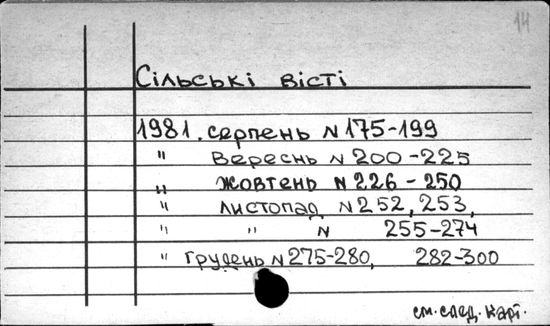 14
Сільські вісті
1981. серпень N 175-199
" Вереснь N 200-225
" жовтень N 226-250
" листопад N 252, 253,
" " N 255-274
" грудень N 275-280, 282-300
см. след. карт.